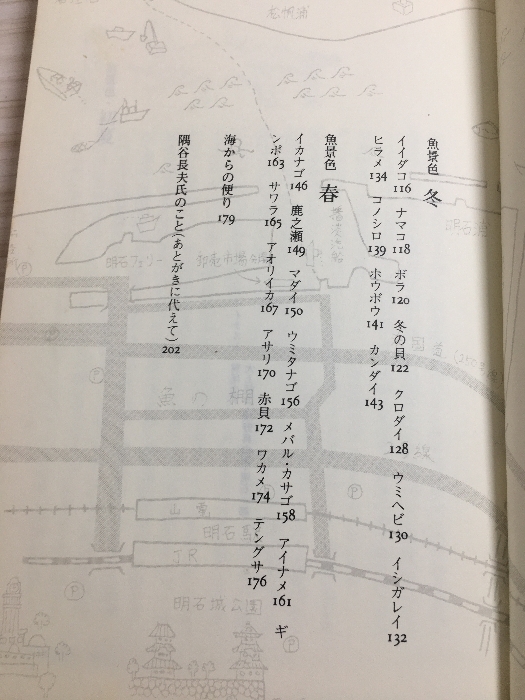 魚景色 冬
イイダコ116 ナマコ118 ボラ120 冬の貝122 クロダイ128 ウミヘビ130 イシガレイ132
ヒラメ134 コノシロ139 ホウボウ141 カンダイ143
魚景色 春
イカナゴ146 鹿之瀬149 マダイ150 ウミタナゴ156 メバル・カサゴ158 アイナメ161 ギ
ンポ163 サワラ165 アオリイカ167 アサリ170 赤貝172 ワカメ174 テングサ176
海からの便り179
隅谷長夫氏のこと(あとがきに代えて)202
松帆浦
播淡汽船
明石港
明石フェリー
卸売市場分場
国道
魚の棚
P
P
P
P
山電
明石駅
JR
明石城公園